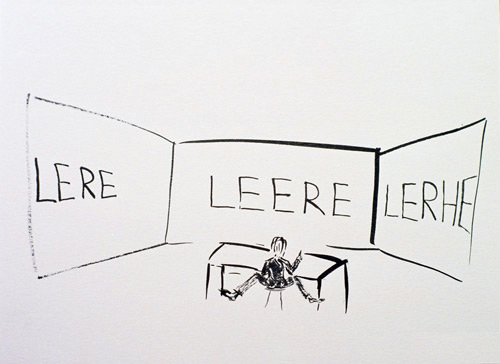 LERE
LEERE
LERHE